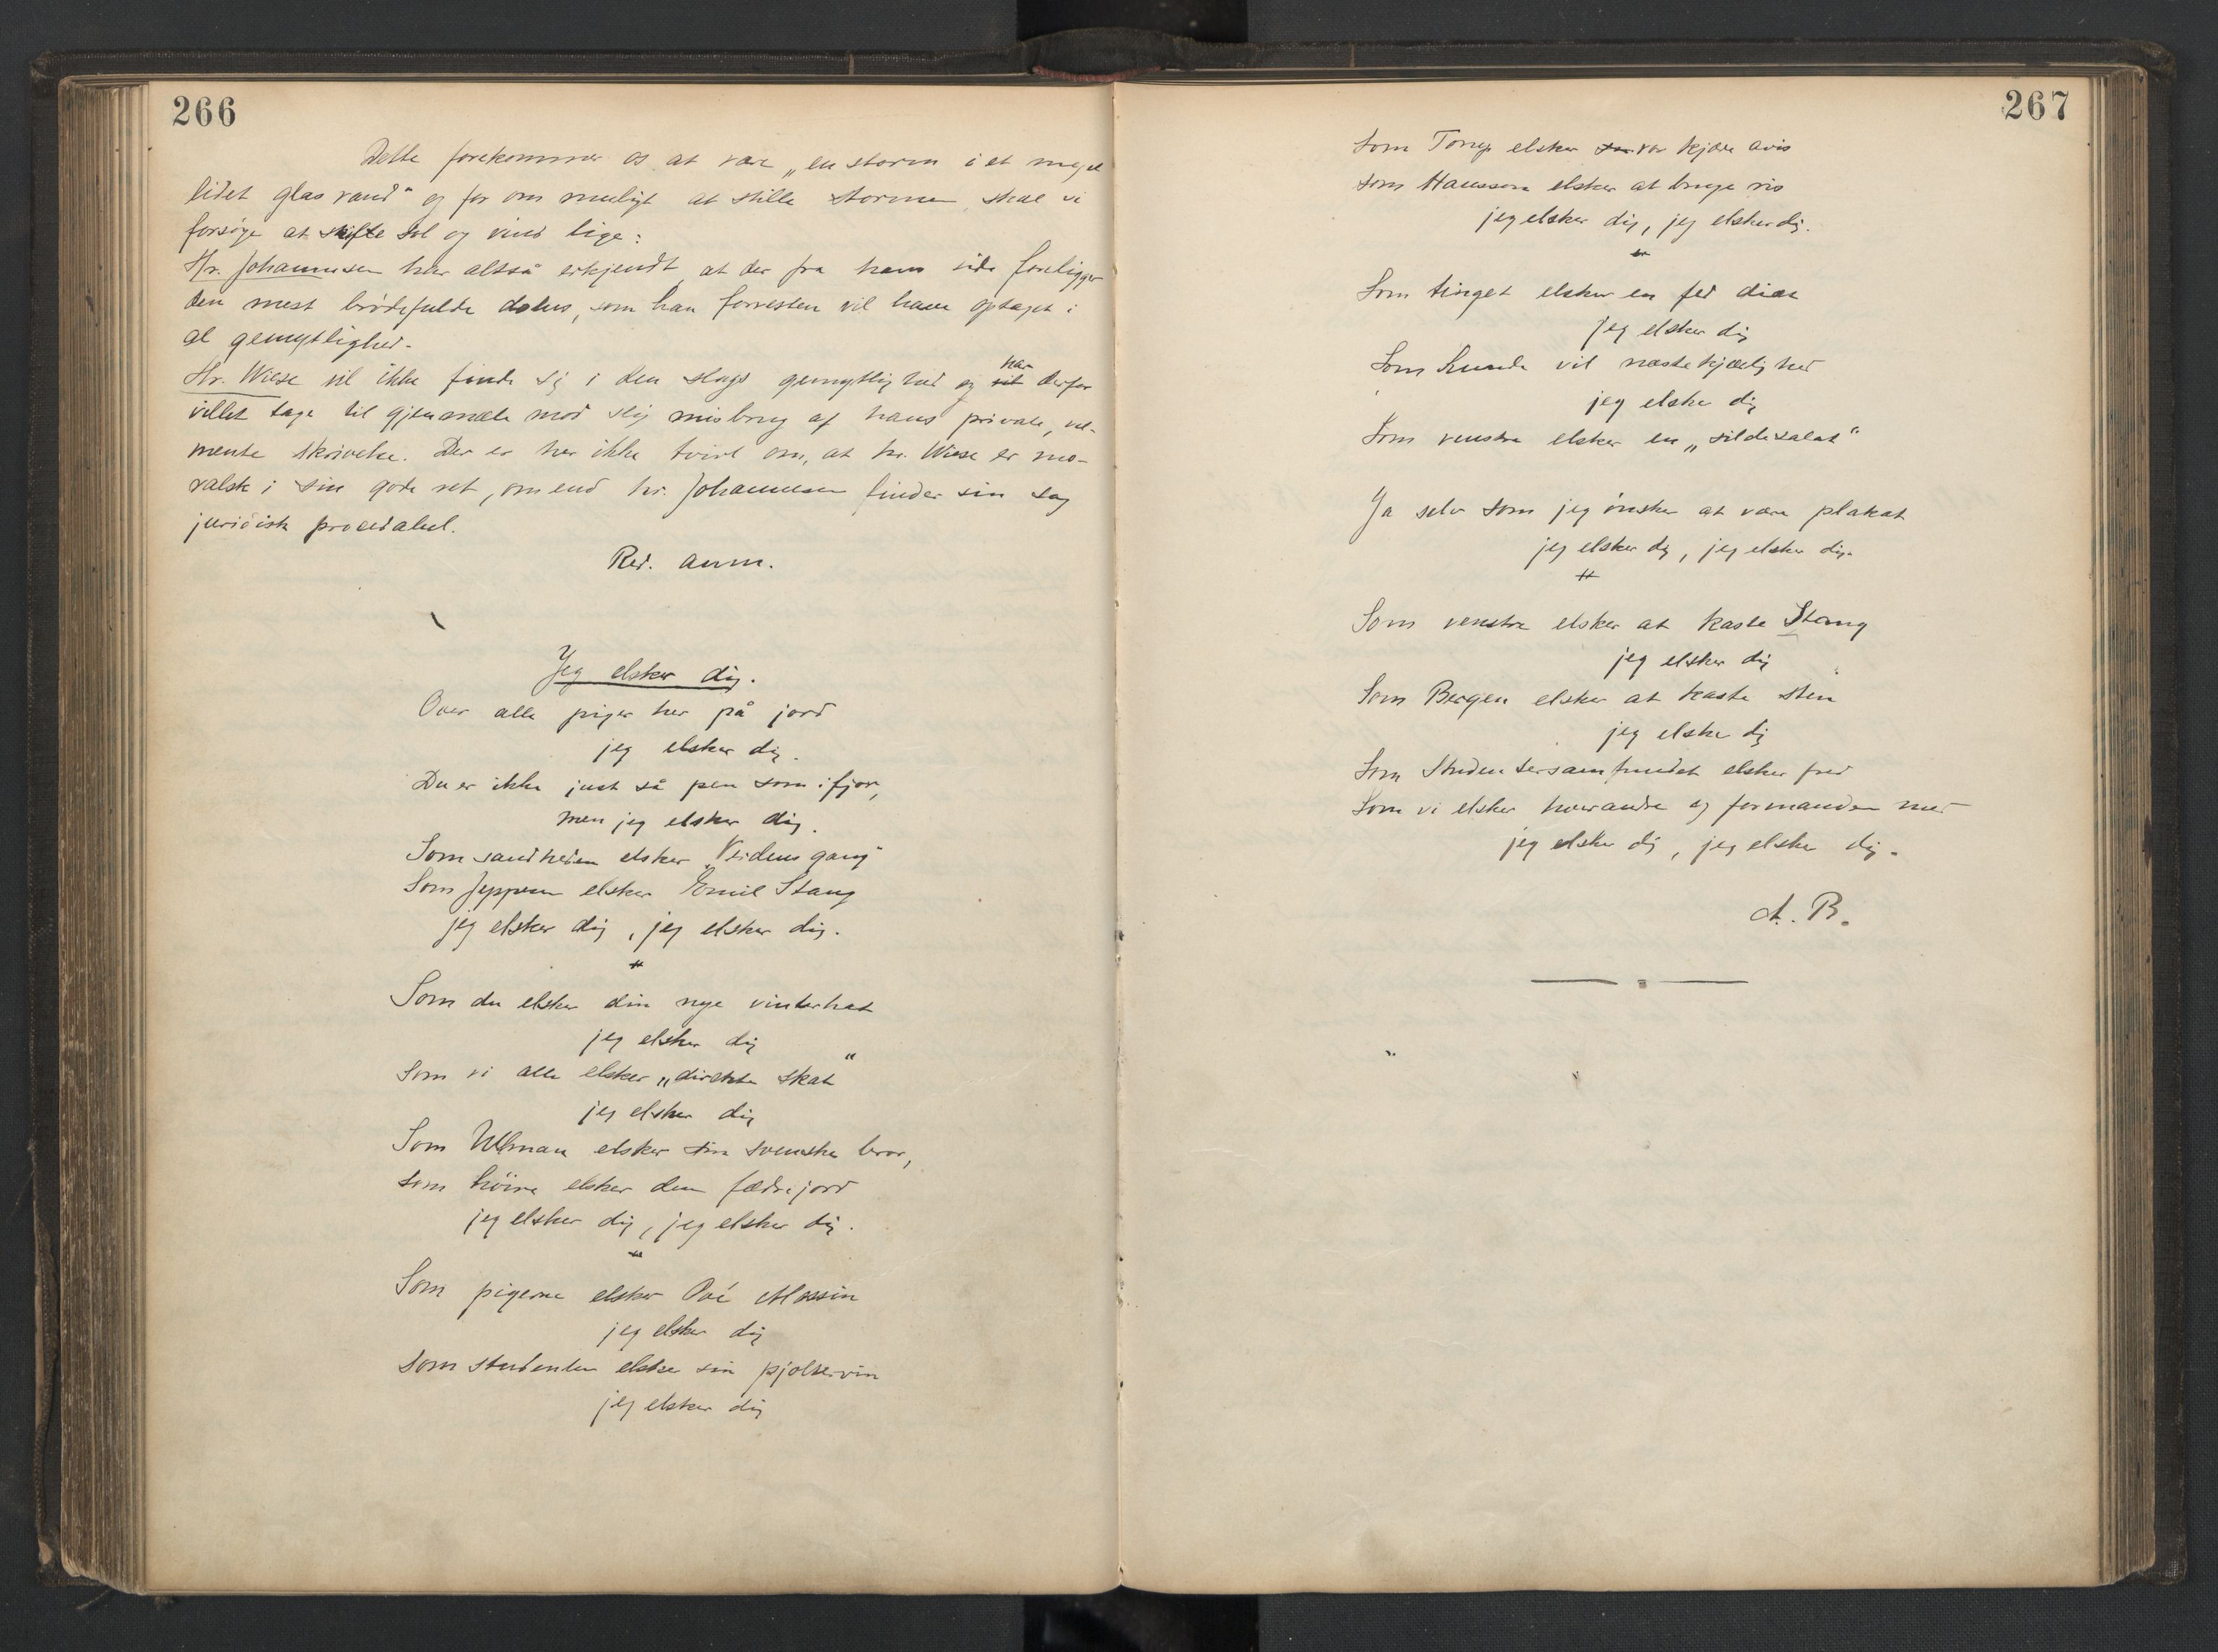 266
Dette forekommer os at være „en storm i et meget
lidet glas vand“ og for om muligt at stille stormen, skal vi
forsøge at skifte sol og vind lige:
Hr. Johannesen har altså erkjendt, at der fra hans side foreligger
den mest brødefulde dolus, som han forresten vil have optaget i
al gemytlighed.
Hr. Wiese vil ikke finde sig i den slags gemytlighed og har derfor
villet tage til gjenmæle mod slig misbrug af hans private, vel-
mente skrivelse. Der er her ikke tvivl om, at hr. Wiese er mo-
ralsk i sin gode ret, om end hr. Johannesen finder sin sag
juridisk procedabel.
Red. anm.
Jeg elsker dig.
Over alle piger her på jord
jeg elsker dig.
Du er ikke just så pen som ifjor,
men jeg elsker dig.
Som sandheden elsker „Verdens gang“
Som Jeppesen elsker Emil Stang
jeg elsker dig, jeg elsker dig.
Som du elsker din nye vinterhat
jeg elsker dig
Som vi alle elsker „direkte skat“
jeg elsker dig
Som Ullman elsker sin svenske bror,
som høire elsker den fædrejord
jeg elsker dig, jeg elsker dig.
Som pigerne elsker
jeg elsker dig
Som studenten elsker sin pjoltervin
jeg elsker dig
267
Som Torup elsker vor kjære avis
som Hansson elsker at bruge ris
jeg elsker dig, jeg elsker dig.
Som tinget elsker en fed diæt
jeg elsker dig
Som hunde vil næstekjærlighed
jeg elsker dig
Som venstre elsker en „sildesalat“
Ja selv som jeg ønsker at være plakat
jeg elsker dig, jeg elsker dig.
Som venstre elsker at kaste Stang
jeg elsker dig
Som Bergen elsker at kaste sten
jeg elsker dig
Som Studentersamfundet elsker fred
Som vi elsker hverandre og formanden med
jeg elsker dig, jeg elsker dig.
A. B.